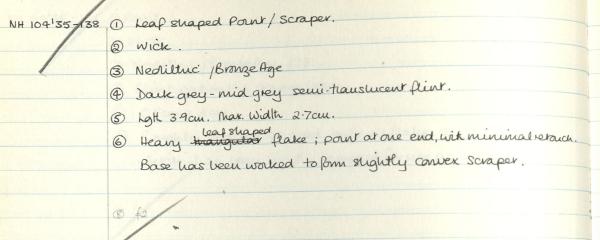 NH 104'35-138 ① Leaf shaped Point / Scraper.
② Wick.
③ Neolithic / Bronze Age
④ Dark grey-mid grey semi-translucent flint.
⑤ Lgth 3.9cm. Max. Width 2.7cm.
⑥ Heavy triangular leaf shaped flake; point at one end, with minimal retouch.
Base has been worked to form slightly convex scraper.
⑧ f2